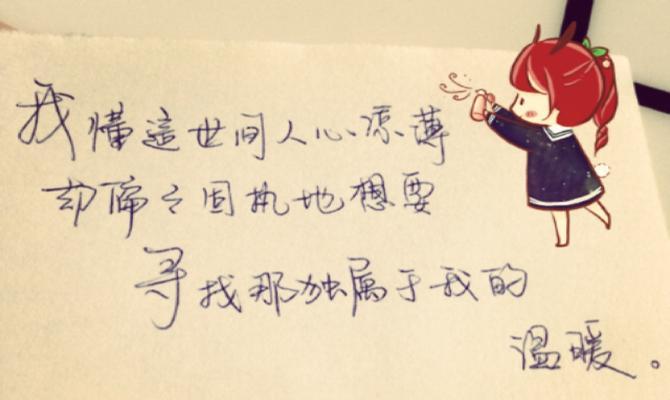 我懂這世间人心凉薄
却偏之固执地想要
寻找那独属于我的
温暖。